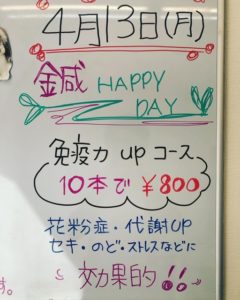 4月13日(月)
金鍼 HAPPY
DAY
免疫力 UP コース
10本で ¥800
花粉症・代謝UP
セキ・のど・ストレスなどに
効果的!!
す。